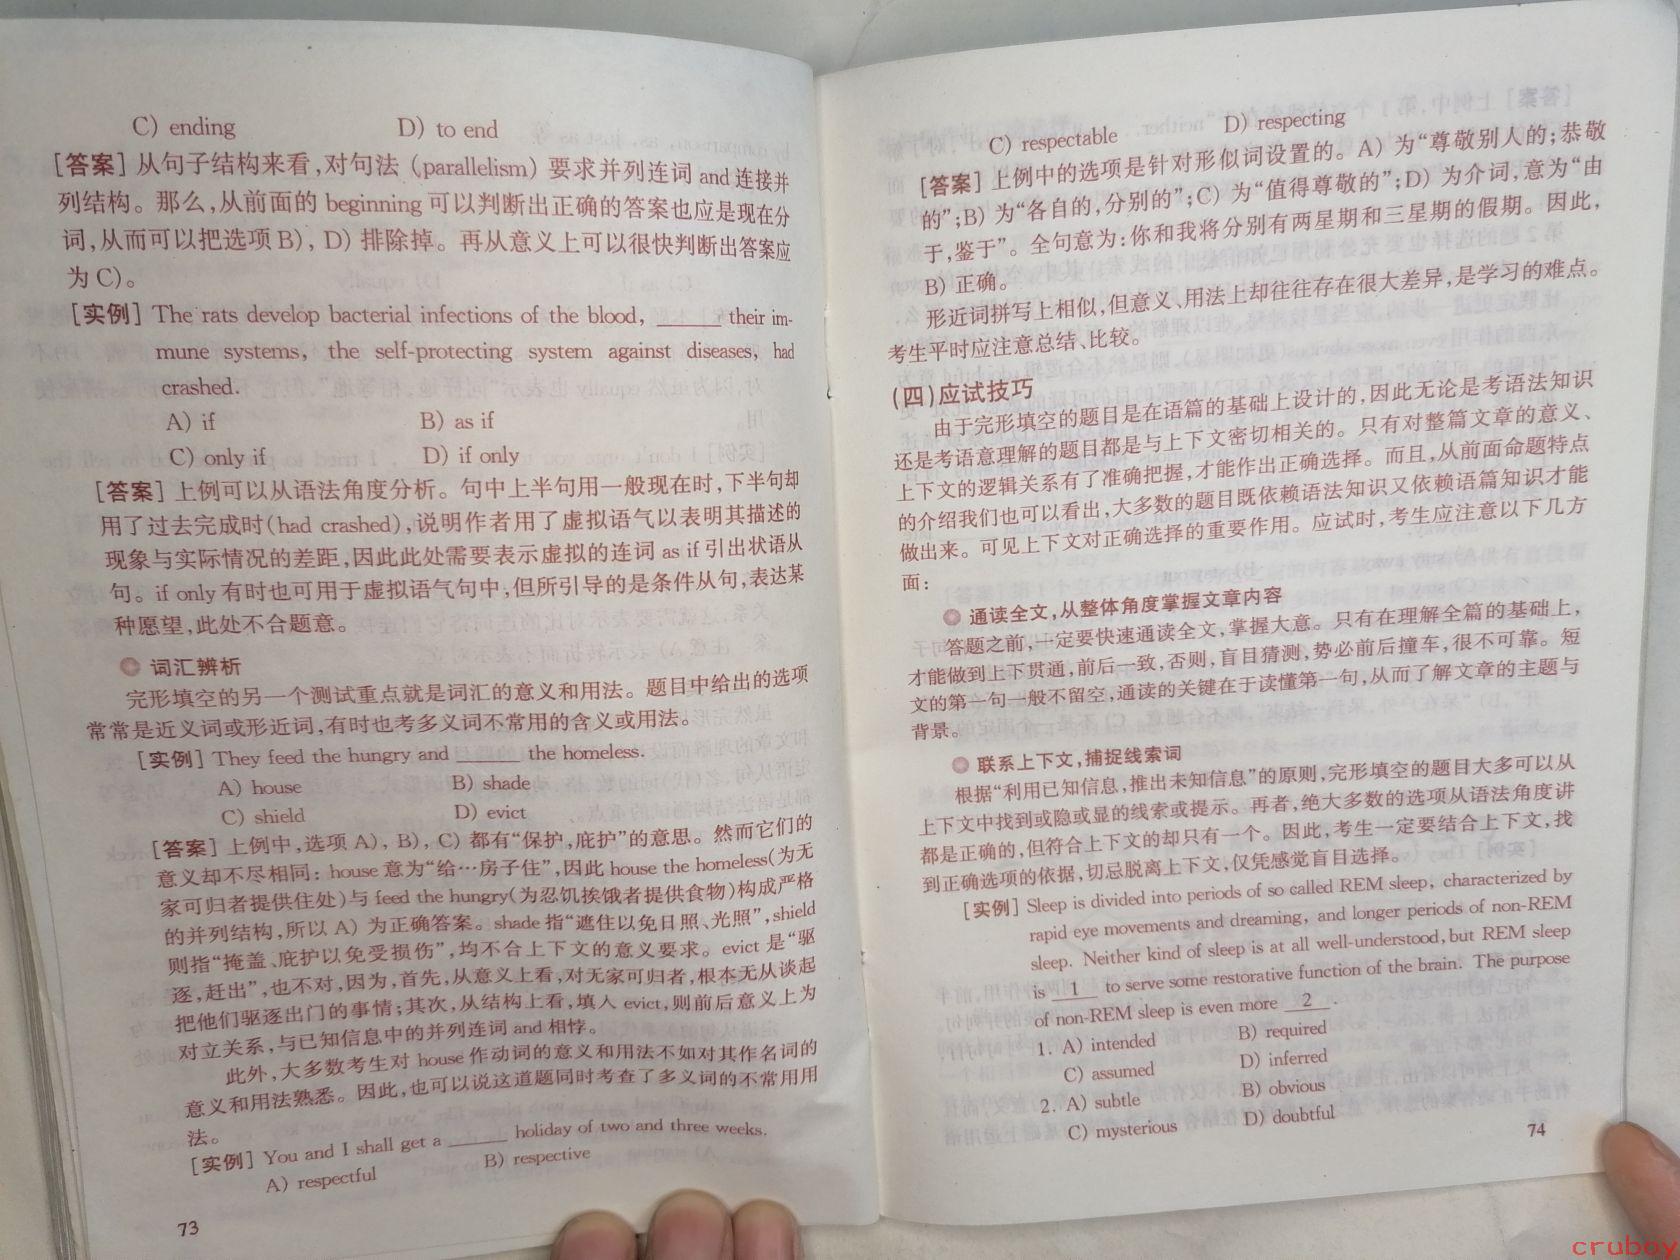 C) ending D) to end
[答案] 从句子结构来看,对句法 (parallelism) 要求并列连词 and 连接并
列结构。那么,从前面的 beginning 可以判断出正确的答案也应是现在分
词,从而可以把选项 B), D) 排除掉。再从意义上可以很快判断出答案应
为 C)。
[实例] The rats develop bacterial infections of the blood, ______ their im-
mune systems, the self-protecting system against diseases, had
crashed.
A) if B) as if
C) only if D) if only
[答案] 上例可以从语法角度分析。句中上半句用一般现在时,下半句却
用了过去完成时(had crashed),说明作者用了虚拟语气以表明其描述的
现象与实际情况的差距,因此此处需要表示虚拟的连词 as if 引出状语从
句。if only 有时也可用于虚拟语气句中,但所引导的是条件从句,表达某
种愿望,此处不合题意。
词汇辨析
完形填空的另一个测试重点就是词汇的意义和用法。题目中给出的选项
常常是近义词或形近词,有时也考多义词不常用的含义或用法。
[实例] They feed the hungry and ______ the homeless.
A) house B) shade
C) shield D) evict
[答案] 上例中,选项 A), B), C) 都有“保护,庇护”的意思。然而它们的
意义却不尽相同: house 意为“给…房子住”,因此 house the homeless(为无
家可归者提供住处)与 feed the hungry(为忍饥挨饿者提供食物)构成严格
的并列结构,所以 A) 为正确答案。shade 指“遮住以免日照、光照”,shield
则指“掩盖、庇护以免受损伤”,均不合上下文的意义要求。evict 是“驱
逐,赶出”,也不对,因为,首先,从意义上看,对无家可归者,根本无从谈起
把他们驱逐出门的事情;其次,从结构上看,填入 evict,则前后意义上为
对立关系,与已知信息中的并列连词 and 相悖。
此外,大多数考生对 house 作动词的意义和用法不如对其作名词的
意义和用法熟悉。因此,也可以说这道题同时考查了多义词的不常用用
法。
[实例] You and I shall get a ______ holiday of two and three weeks.
A) respectful B) respective
73
C) respectable D) respecting
[答案] 上例中的选项是针对形似词设置的。A) 为“尊敬别人的;恭敬
的”;B) 为“各自的,分别的”;C) 为“值得尊敬的”;D) 为介词,意为“由
于,鉴于”。全句意为:你和我将分别有两星期和三星期的假期。因此,
B) 正确。
形近词拼写上相似,但意义、用法上却往往存在很大差异,是学习的难点。
考生平时应注意总结、比较。
(四)应试技巧
由于完形填空的题目是在语篇的基础上设计的,因此无论是考语法知识
还是考语意理解的题目都是与上下文密切相关的。只有对整篇文章的意义、
上下文的逻辑关系有了准确把握,才能作出正确选择。而且,从前面命题特点
的介绍我们也可以看出,大多数的题目既依赖语法知识又依赖语篇知识才能
做出来。可见上下文对正确选择的重要作用。应试时,考生应注意以下几方
面:
通读全文,从整体角度掌握文章内容
答题之前,一定要快速通读全文,掌握大意。只有在理解全篇的基础上,
才能做到上下贯通,前后一致,否则,盲目猜测,势必前后撞车,很不可靠。短
文的第一句一般不留空,通读的关键在于读懂第一句,从而了解文章的主题与
背景。
联系上下文,捕捉线索词
根据“利用已知信息,推出未知信息”的原则,完形填空的题目大多可以从
上下文中找到或隐或显的线索或提示。再者,绝大多数的选项从语法角度讲
都是正确的,但符合上下文的却只有一个。因此,考生一定要结合上下文,找
到正确选项的依据,切忌脱离上下文,仅凭感觉盲目选择。
[实例] Sleep is divided into periods of so called REM sleep, characterized by
rapid eye movements and dreaming, and longer periods of non-REM
sleep. Neither kind of sleep is at all well-understood, but REM sleep
is __1__ to serve some restorative function of the brain. The purpose
of non-REM sleep is even more __2__.
1. A) intended B) required
C) assumed D) inferred
2. A) subtle B) obvious
C) mysterious D) doubtful
74
cruboy